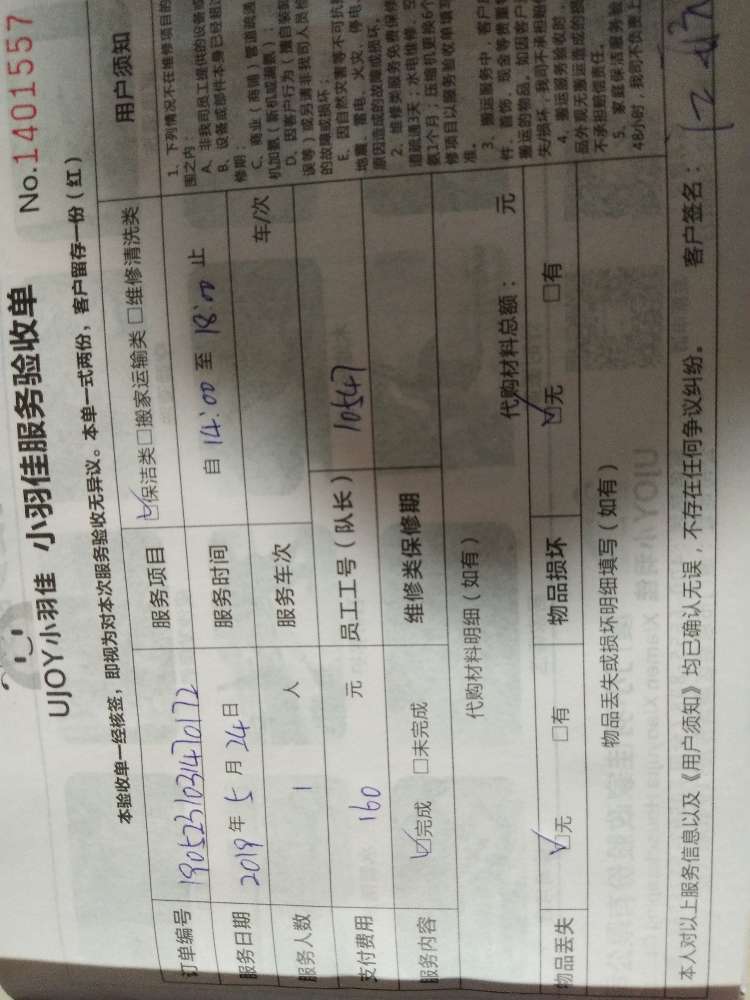 UJOY小羽佳 小羽佳服务验收单 No.1401557
本验收单一经核签，即视为对本次服务验收无异议。本单一式两份，客户留存一份（红）
订单编号 1905231031470172 服务项目 ☑保洁类□搬家运输类□维修清洗类
服务日期 2019年5月24日 服务时间 自14:00至18:00止
服务人数 1 人 服务车次 车/次
支付费用 160 元 员工工号（队长） 10547
服务内容 ☑完成 □未完成 维修类保修期
代购材料明细（如有） 代购材料总额： 元
物品丢失 ☑无 □有 物品损坏 ☑无 □有
物品丢失或损坏明细填写（如有）
本人对以上服务信息以及《用户须知》均已确认无误，不存在任何争议纠纷。 客户签名：
用户须知
1、下列情况不在维修项目的
围之内：
A、非我司员工提供的设备或
B、设备或部件本身已经超过
修期；
C、商业（商铺）管道疏通
机加氨（新机或漏氨）；
D、因客户行为（擅自装卸
误等）或另请非我司人员检
的故障或损坏；
E、因自然灾害等不可抗
地震、雷电、火灾、停电
原因造成的故障或损坏。
2、维修类服务免费保修
道疏通3天；水电维修、空
氨1个月；压缩机更换6个
修项目以服务验收单填写
准。
3、搬运服务中，客户
件、首饰、现金等贵重
搬运的物品。如因客户
失/损坏，我司不承担赔
4、搬运服务验收时，
品外观无搬运造成的损
不承担赔偿责任。
5、家庭保洁服务验
48小时，我司不负责上